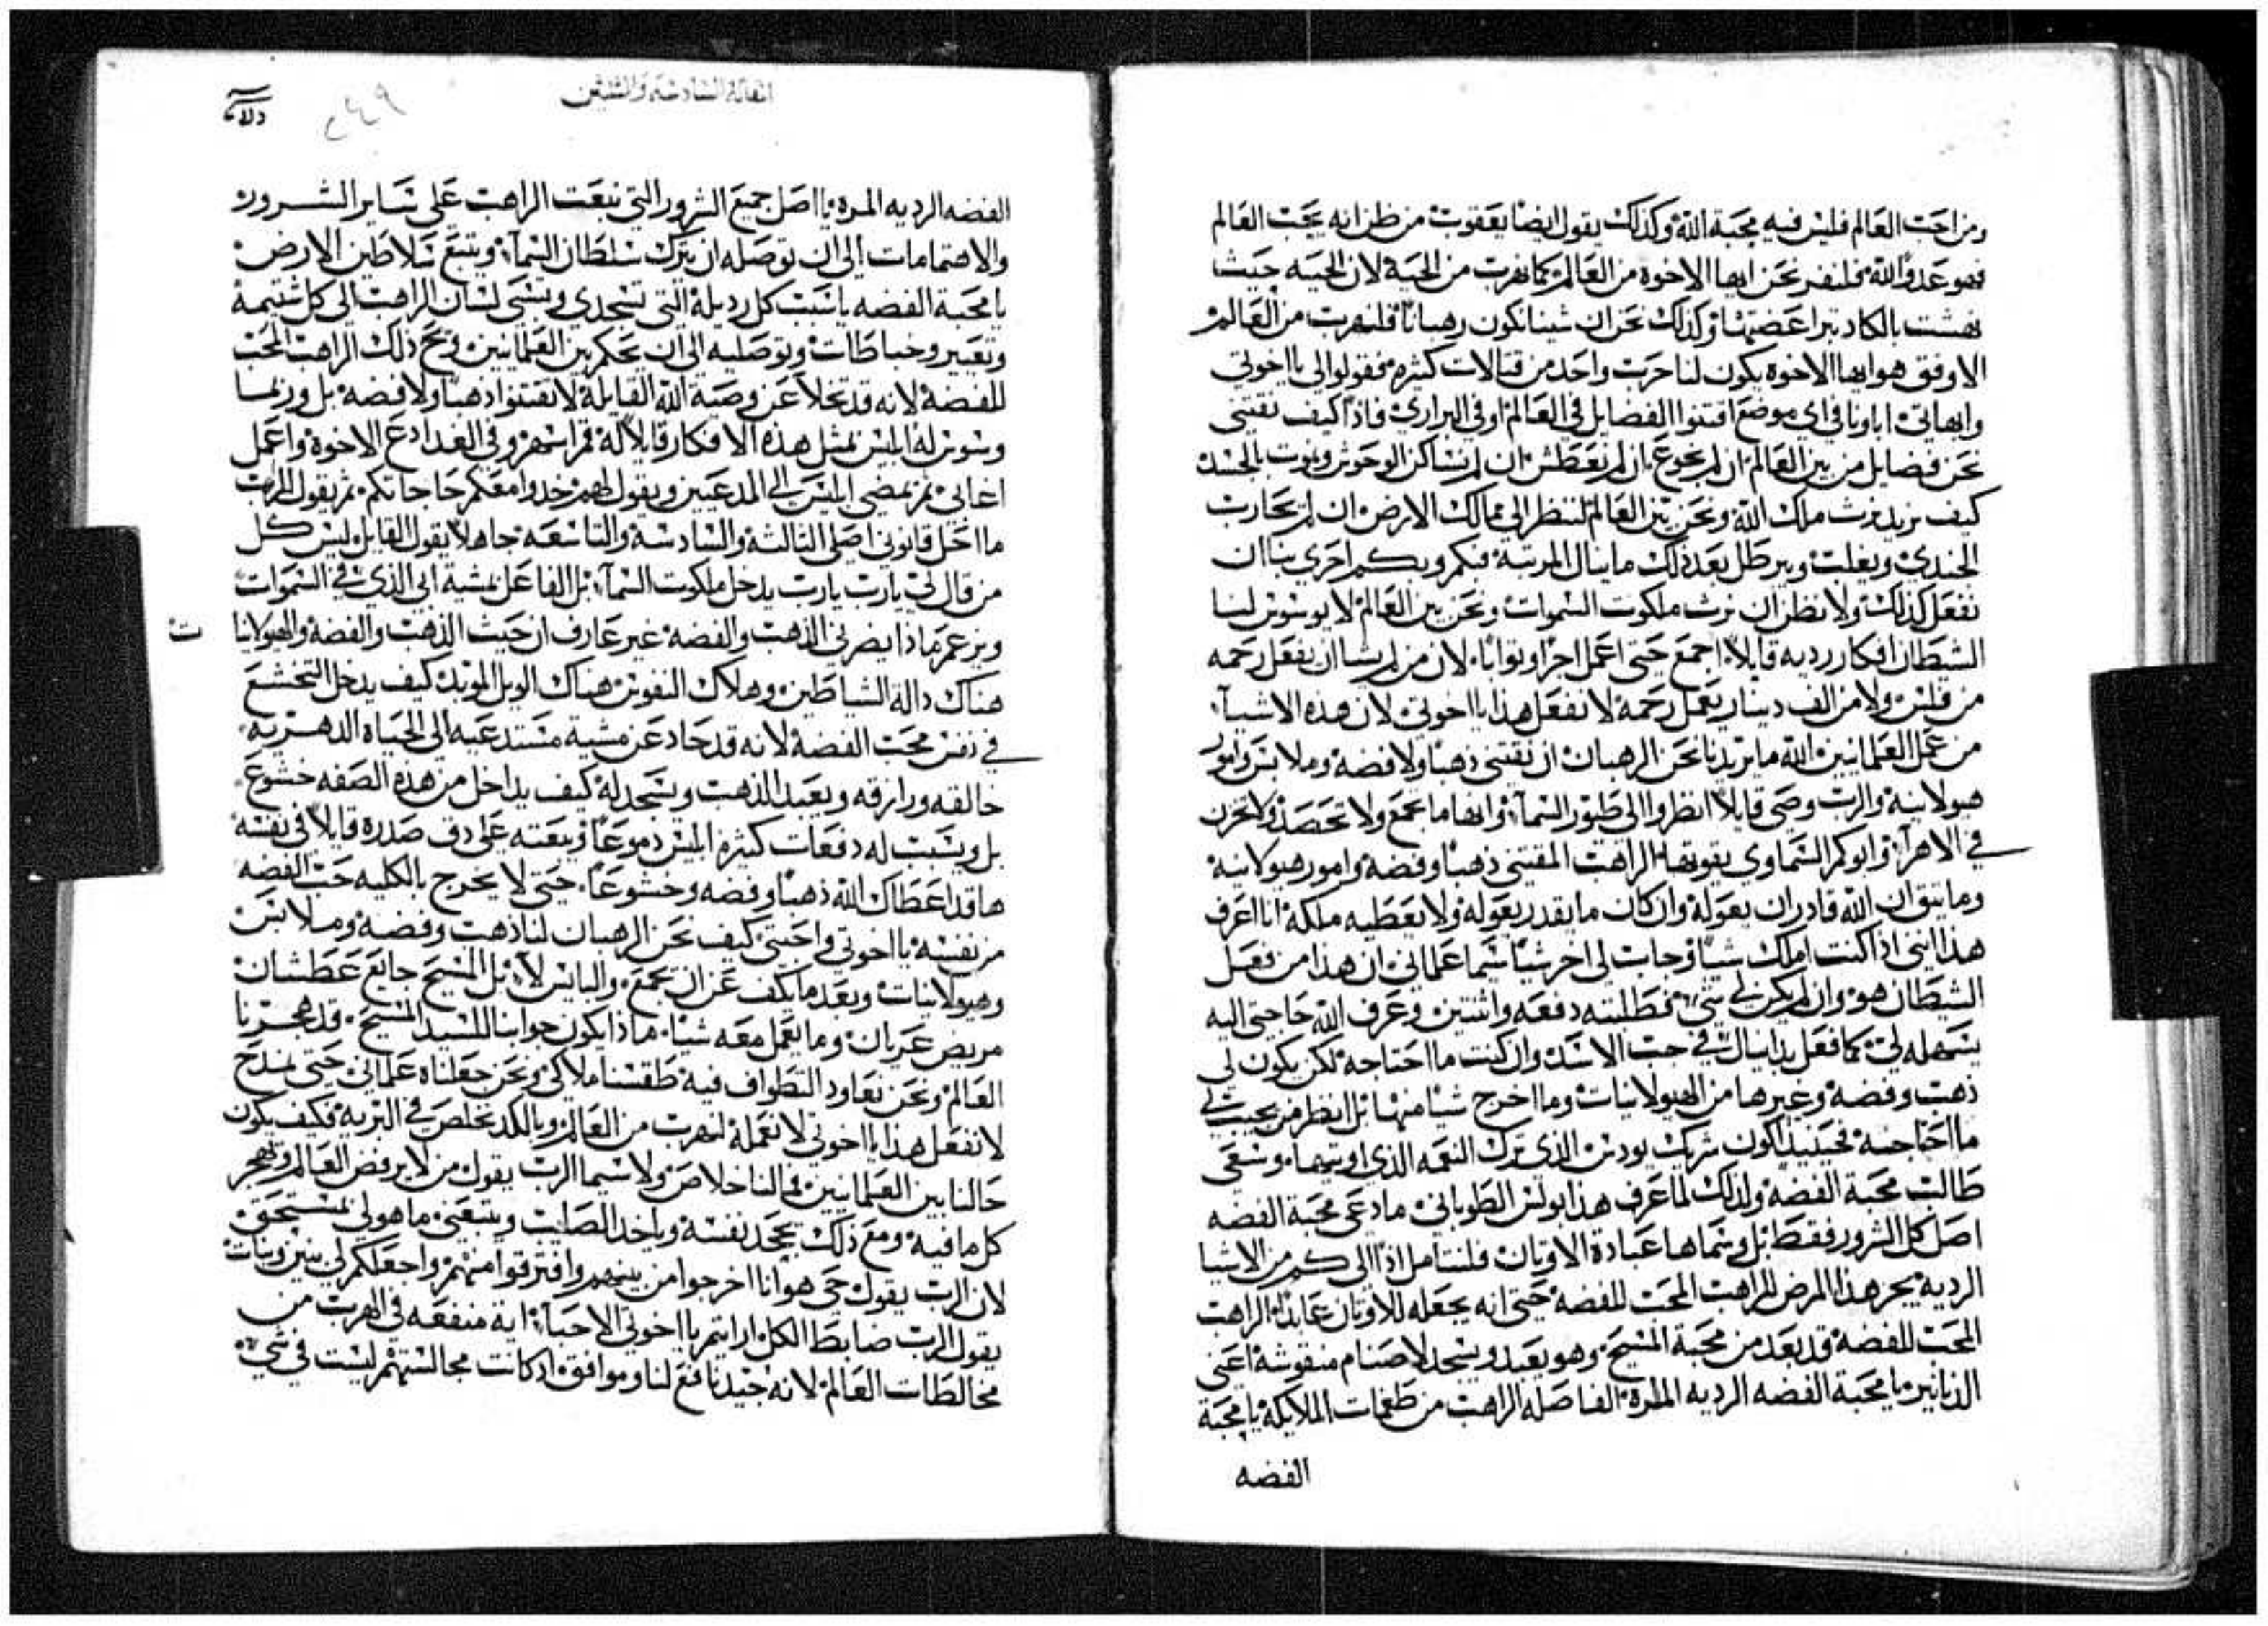 ومن احب العالم فليس فيه محبة الله وكذلك يقول ايضا يعقوب من ظن انه يحب العالم
فهو عدو الله فلنفر نحن ايها الاخوه من العالم كما نهرب من الحية لان الحيه حيث
نهشت بالكاد تبرا عضتها وكذلك نحن ان شينا نكون رهبانا فلنهرب من العالم
الاوفق هو ايها الاخوه يكون لنا حرب واحد من قتالات كثيره فقولوا لي يا اخوتي
وابهاتي اباونا في اي موضع اقتنوا الفضايل في العالم او في البراري فاذا كيف نقتني
نحن فضايل من بين العالم ان لم نجوع ان لم نعطش ان لم نساكن الوحوش ونموت بالجسد
كيف نريد نرث ملك الله ونحن بين العالم لننظر الي ممالك الارض ان لم يحارب
الجندي ويغلب ويبرطل بعد ذلك ما ينال المرتبة فبكم وبكم احرى بنا ان
نفعل كذلك ولا نظن ان نرث ملكوت السموات ونحن بين العالم لا يوسوس لنا
الشيطان افكار رديه قايلا اجمع حتى اعمل اجرا وثوابا لان من لم يشا ان يفعل رحمه
من فلس ولا من الف دينار يعمل رحمة لا نفعل هذا يا اخوتي لان هذه الاشيآء
من عمل العلمانيين الله ما يريدنا نحن الرهبان ان نقتني ذهبا ولا فضه وملابس وامور
هيولانيه والرب وصى قايلا انظروا الى طيور السمآء وانها ما تجمع ولا تحصد ولا تخزن
في الاهرآء وابوكم السماوي يقوتها الراهب المقتني ذهبا وفضة وامور هيولانية
وما يثق ان الله قادر ان يعوله وان كان ما يقدر يعوله ولا يعطيه ملكه انا اعرف
هذا انني اذا كنت املك شيا وجاب لي اخر شيا سيما علماني ان هذا من فعل
الشيطان هو وان لم يكن لي شي فطلبته دفعه واثنتين وعرف الله حاجتي اليه
يسهله لي كما فعل بدانيال في جب الاسد وان كنت ما احتاجه لكن يكون لي
ذهب وفضه وغيرها من الهيولانيات وما اخرج شيا منها بل انظر من يجيب لي
ما احتاجه فحينيذ اكون شريك يودس الذي ترك النعمه الذي اوتيها وسعى
طالب محبة الفضه ولذلك لما عرف هذا بولس الطوباني ما دعى محبة الفضه
اصل كل الشرور فقط بل وسماها عبادة الاوثان فلنتامل اذا الى كم من الاشيا
الرديه يجر هذا المرض الراهب المحب للفضة حتى انه يجعله للاوثان عابدا الراهب
المحب للفضه قد بعد من محبة المسيح وهو يعبد ويسجد لاصنام منقوشة اعني
الدنانير يا محبة الفضه الرديه المره الفاصله الراهب من طغمات الملايكة يا محبة
الفضه
المقالة السادسه والستين
٢٤٩
الفضه الرديه المره يا اصل جميع الشرور التي تبعت الراهب على ساير الشرور
والاهتمامات الى ان توصله ان يترك سلطان السمآء ويتبع سلاطين الارض
يا محبة الفضه يا سبب كل رديلة التي تستحدي وتنسى لسان الراهب الى كل شتيمة
وتعيير وخباطات وتوصليه الى ان يحكم بين العلمانيين ويح ذلك الراهب المحب
للفضة لانه قد تخلا عن وصية الله القايلة لا تقتنوا ذهبا ولا فضه بل وربما
وسوس له ابليس بمثل هذه الافكار قايلا له قم اسهر وفي الغد ادع الاخوة واعمل
اغابي ثم يمضي ابليس الى المدعيين ويقول لهم خدوا معكم حاجاتكم ثم يقول الراهب
ما احل قانوني اصلي الثالثة والسادسة والتاسعه جاهلا يقول القايل ليس كل
من قال لي يارب يارب يدخل ملكوت السمآء بل الفاعل مشية ابي الذي في السموات
ويزعم ماذا يضرني الذهب والفضة غير عارف ان حيث الذهب والفضه والهيولانيات
هناك دالة الشياطين وهلاك النفوس هناك الويل الموبد كيف يدخل التخشع
في نفس محب الفضة لانه قد حاد عن مشية مستدعيه الى الحياه الدهرية
خالقه ورازقه ويعبد الذهب ويسجد له كيف يداخل من هذه الصفه خشوع
بل ويسبب له دفعات كثيره ابليس دموعا ويبعته على دق صدره قايلا في نفسه
ها قد اعطاك الله ذهبا وفضه وخشوعا حتى لا يخرج بالكليه حب الفضه
من نفسه يا اخوتي واحبتي كيف نحن الرهبان لنا ذهب وفضه وملابس
وهيولانيات وبعد ما نكف عن ان نجمع والبايس لا بل المسيح جايع عطشان
مريض عريان وما نعمل معه شيا ماذا يكون جوابنا للسيد المسيح قد هجرنا
العالم ونحن نعاود التطواف فيه طقسنا ملاكي ونحن جعلناه علماني حتى نمدح
لا نفعل هذا يا اخوتي لا نعمله لنهرب من العالم وبالكد نخلص في البريه فكيف يكون
حالنا بين العلمانيين فما لنا خلاص ولا سيما الرب يقول من لا يرفض العالم ويهجر
كل ما فيه ومع ذلك يجحد نفسه وياخد الصليب ويتبعني ما هو لي بمستحق
لان الرب يقول حي هو انا اخرجوا من بينهم وافترقوا منهم واجعلكم لي بنين وبنات
يقول الرب ضابط الكل ارايتم يا اخوتي الاحبآء اية منفعه في الهرب من
مخالطات العالم لانه جيد نافع لنا وموافق اد كانت مجالستهم ليست في شي